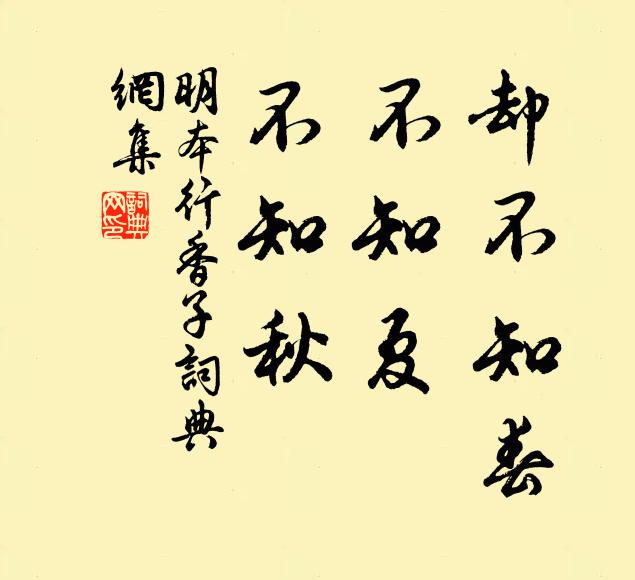 却不知春
不知夏
不知秋
明本行香子詞典
網集
詞典網印